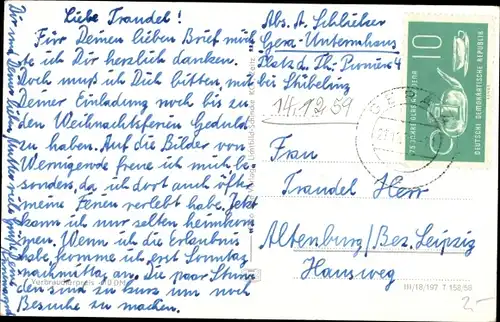 Liebe Traudel!
Für Deinen lieben Brief möch-
te ich Dir herzlich danken.
Doch muß ich Dich bitten, mit
Deiner Einladung noch bis zu
den Weihnachtsferien Geduld
zu haben. Auf die Bilder von
Wernigerode freue ich mich be-
sonders, da ich dort auch öfter
meine Ferien verlebt habe. Jetzt
kann ich nur selten heimkom-
men. Wenn ich die Erlaubnis
habe, komme ich erst Sonntag
nachmittag an. Die paar Stun-
den sind zu kurz um noch
Besuche zu machen.
Dir und Deiner lieben Mutter viele Grüße Deine
Abs. A. Schlutter
Gera-Untermhaus
Platz d. Th. Pioniere 4
bei Stübling
14.12.59
Frau
Traudel Herr
Altenburg/Bez. Leipzig
Hausweg
GERA
10
75 JAHRE GLAS JENA
DEUTSCHE DEMOKRATISCHE REPUBLIK
Verbraucherpreis DM
III/18/197 T 158/58
2,-